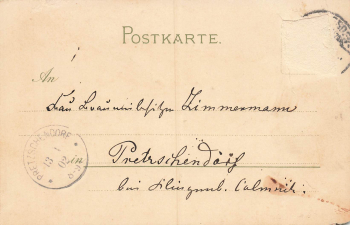 POSTKARTE.
An
Frau Brauereibesitzer Zimmermann
in Pretzschendorf
bei Klingenb. Colmnitz.
PRETZSCHENDORF
13 1
02